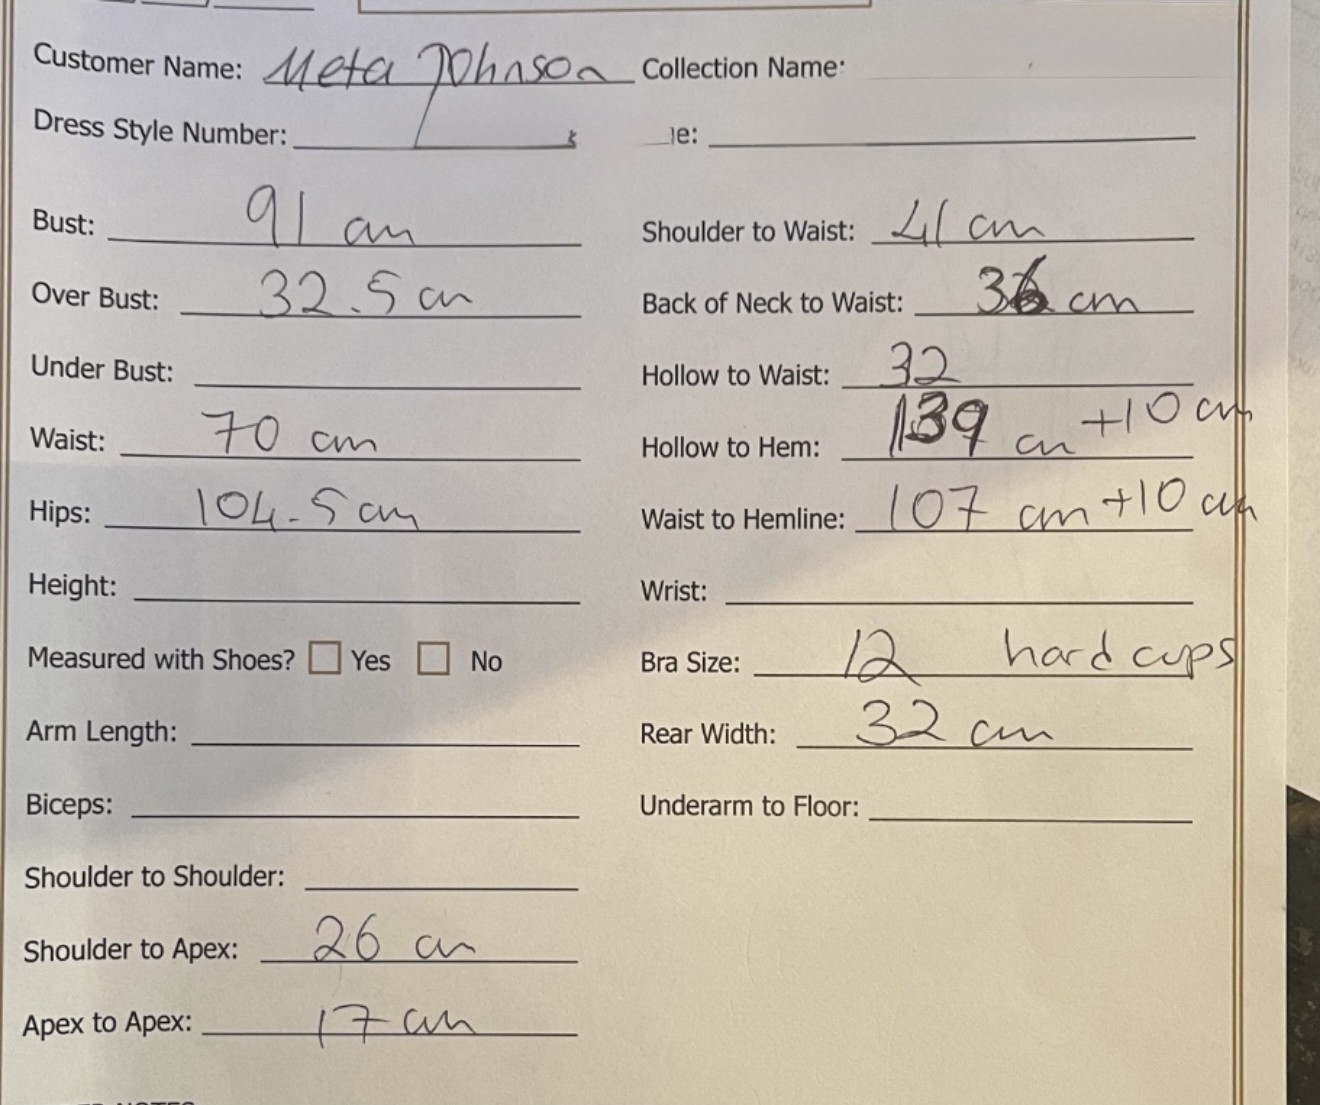 Customer Name: Meta Johnson Collection Name:
Dress Style Number: e:
Bust: 91 cm Shoulder to Waist: 41 cm
Over Bust: 32.5 cm Back of Neck to Waist: 36 cm
Under Bust: Hollow to Waist: 32
Waist: 70 cm Hollow to Hem: 139 cm +10 cm
Hips: 104.5 cm Waist to Hemline: 107 cm +10 cm
Height: Wrist:
Measured with Shoes? Yes No Bra Size: 12 hard cups
Arm Length: Rear Width: 32 cm
Biceps: Underarm to Floor:
Shoulder to Shoulder:
Shoulder to Apex: 26 cm
Apex to Apex: 17 cm